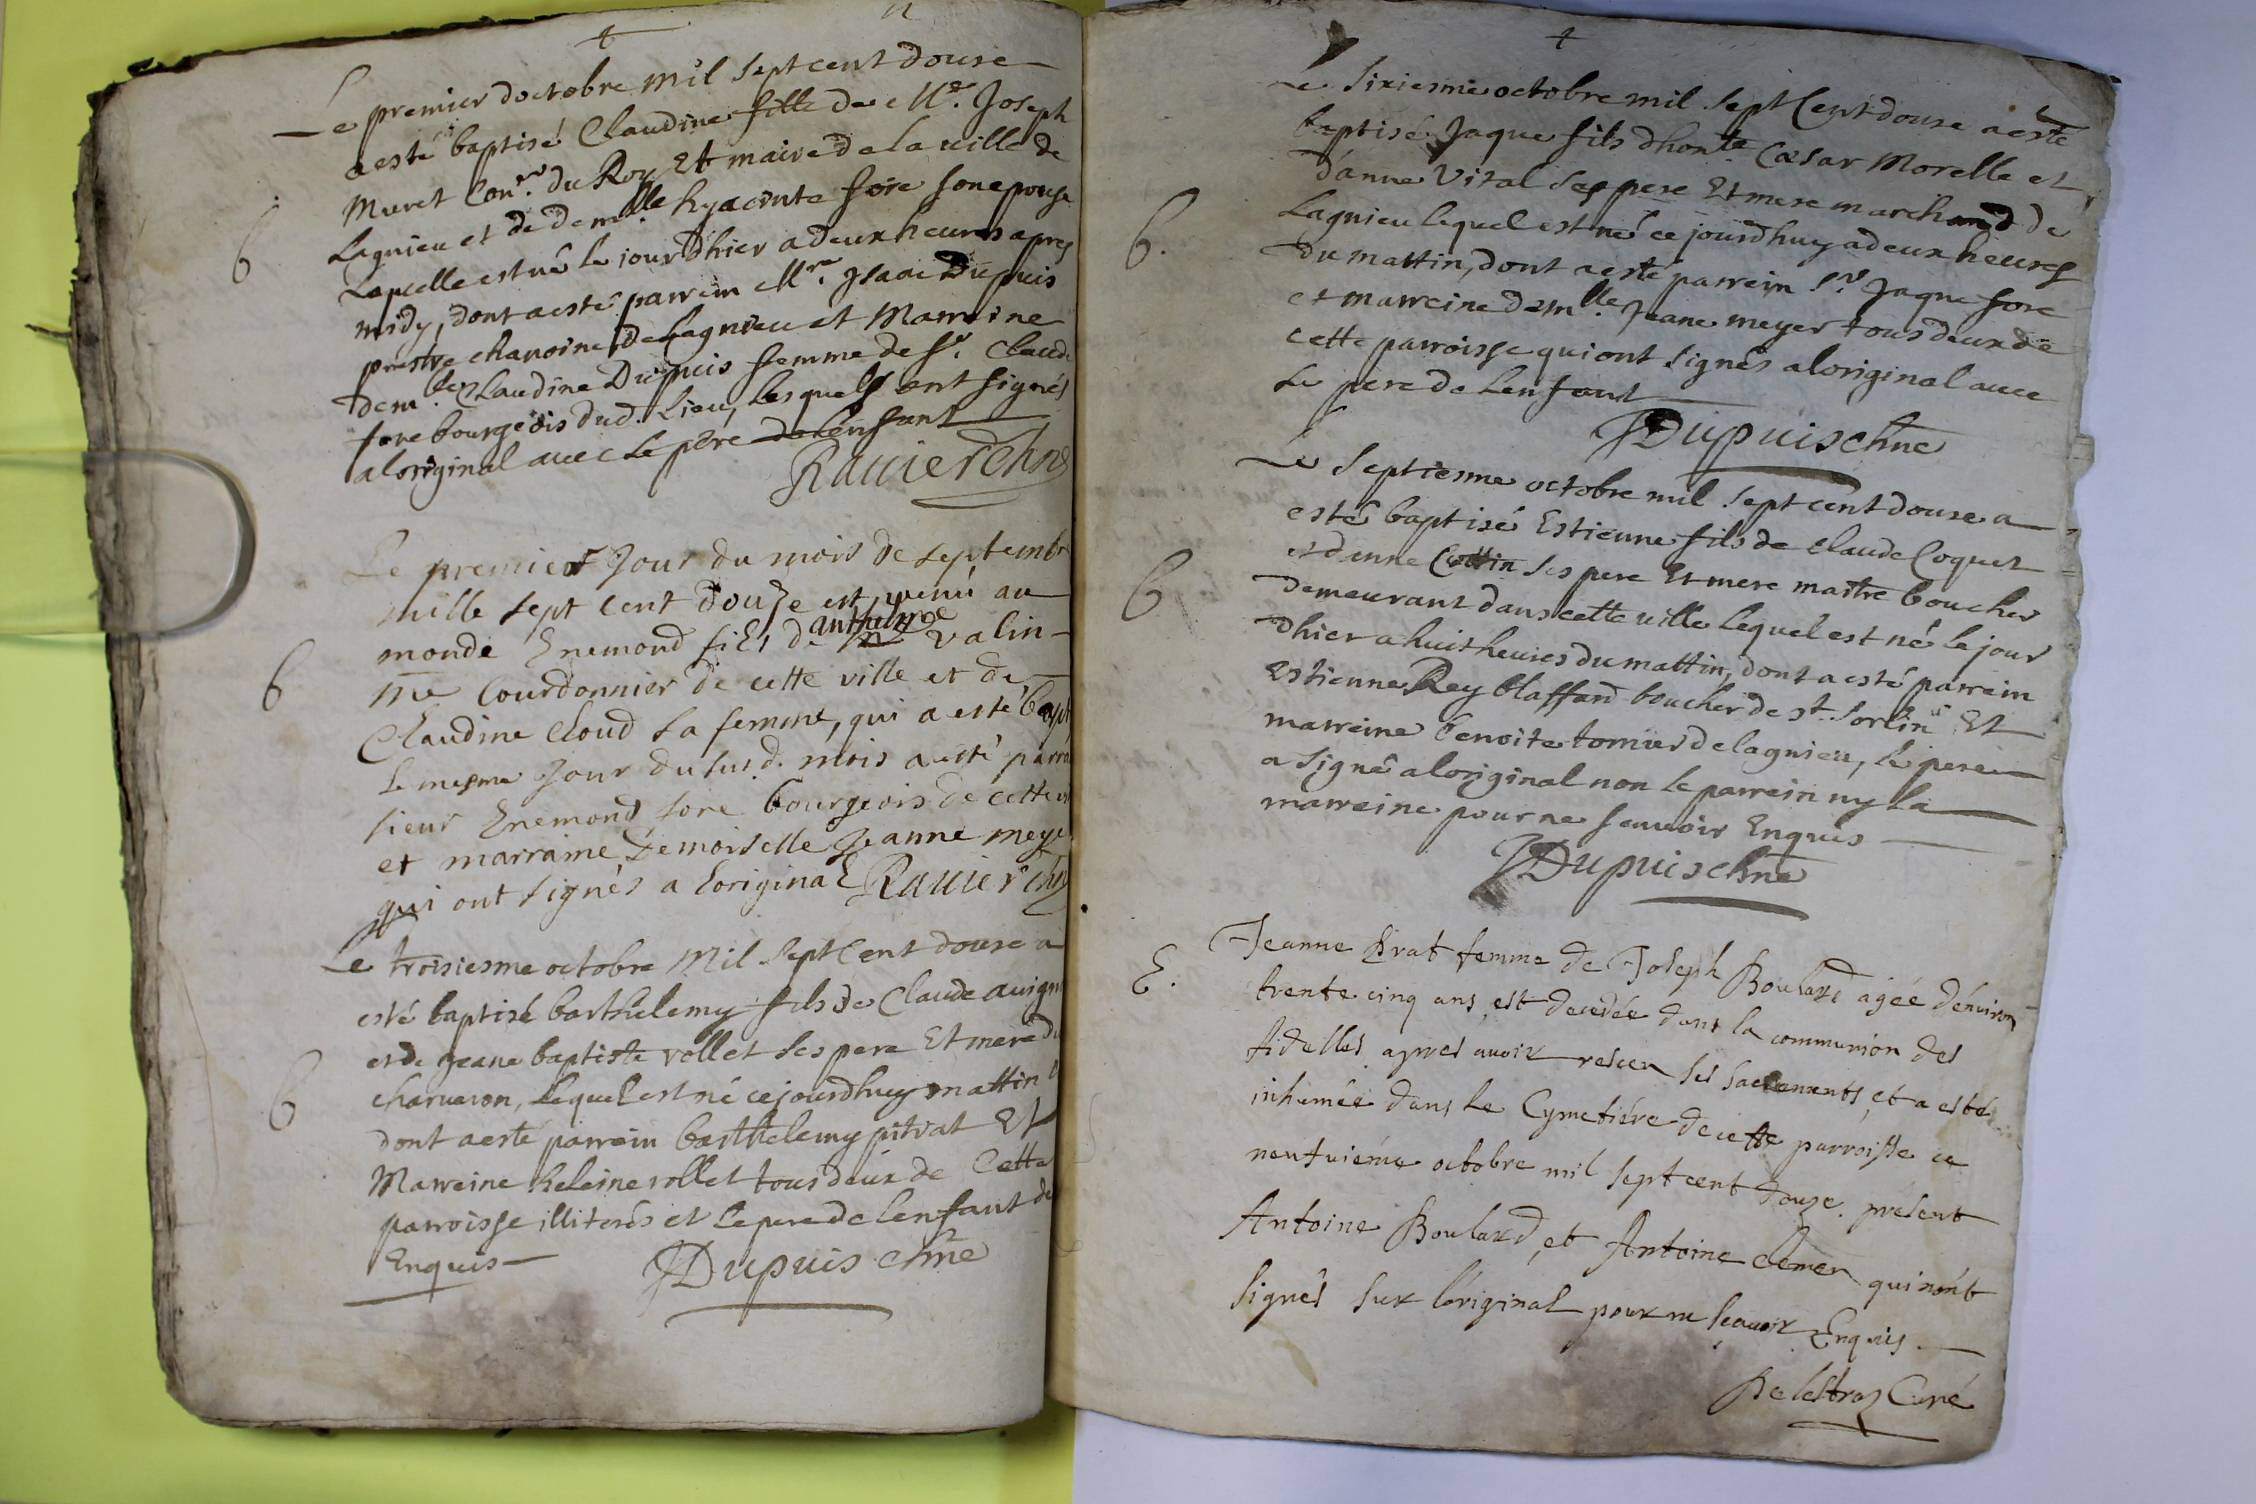 Le premier doctobre mil sept cent douse
a esté baptisé Claudine fille de Mre. Joseph
Muret Conr. du Roy Et maire de la ville de
Lagnieu et de demlle. hyacinte fore son epouse
Laquelle est né le jour dhier a deux heures apres
midy, dont a esté parrein Mre. Isaac Dupuis
prestre chanoine de Lagnieu et Marreine
B.
demlle. Claudine Dupuis femme de Sr. Claude
fore bourgeois dud. Lieu, lesquels ont signés
aloriginal avec le père de Lenfant
Ravier chne
Le premier Jour du mois de septembr
mille sept cent douze est venu au
monde Enemond fils de anthelme valin
B
me Courdonnier de cette ville et de
Claudine Cloud sa femme, qui a esté bapt
le mesme Jour du susd. mois a esté parra
sieur Enemond fore bourgeois de cette v
et marraine Demoiselle Jeanne meye
qui ont signés a Loriginal Ravier chn
Le troisiesme octobre Mil sept Cent douse a
esté baptisé barthelemy fils de Claude avign
et de Jeane baptiste vollet ses pere Et mere d
B
charveron, Lequel est né cejourdhuy mattin
dont a esté parrein barthelemy pitrat Et
Marreine heleine vollet tous deux de Cette
parroisse illiterés et le pere de lenfant de
Enquis
JDupuis chne
Le Sixiesme octobre mil sept Cent douse a esté
baptisé Jaque fils dhonte. Cæsar Morelle et
d'anne Vital ses pere Et mere marchand de
B.
Lagnieu lequel est né ce jourdhuy a deux heures
du mattin, dont a esté parrein Sr. Jaque fore
et marreine demlle. Jeane meyer tous deux de
cette parroisse qui ont signés aloriginal avec
Le père de Lenfant
JDupuis chne
Le Septiesme octobre mil sept cent douse a
esté baptisé Estienne fils de Claude Coquet
et d'anne Cottin ses pere Et mere maitre boucher
B
demeurant dans cette ville lequel est né le jour
dhier a huit heures du mattin, dont a esté parrein
Estienne Rey blaffard boucher de st. Sorlin Et
marreine benoite tornier de lagnieu, le pere
a signé aloriginal non le parrein ny la
marreine pour ne scavoir Enquis
JDupuis chne
E.
Jeanne Prat femme de Joseph Boulard agée d'environ
trente cinq ans, est decedée dans la communion des
fidelles apres avoir resceu ses sacrements, et a esté
inhumée dans le Cymetiére de cette parroisse ce
neufviéme octobre mil sept cent douze. présent
Antoine Boulard, et Antoine Clemen qui n'ont
signés sur l'original pour ne scavoir Enquis.
Delestraz Curé